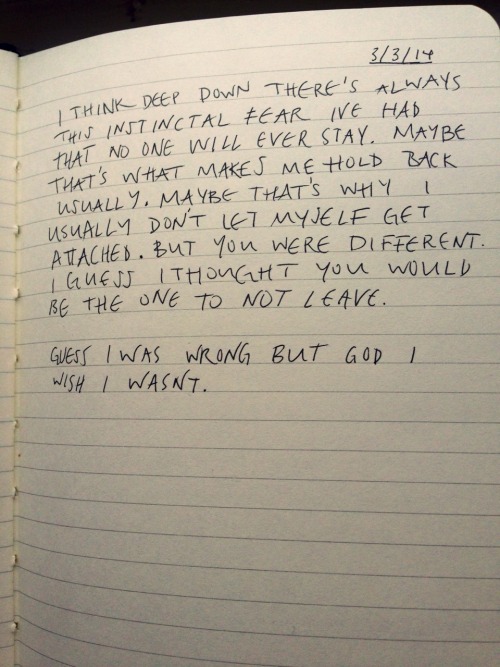 3/3/14
I THINK DEEP DOWN THERE'S ALWAYS
THIS INSTINCTAL FEAR IVE HAD
THAT NO ONE WILL EVER STAY. MAYBE
THAT'S WHAT MAKES ME HOLD BACK
USUALLY. MAYBE THAT'S WHY I
USUALLY DON'T LET MYSELF GET
ATTACHED. BUT YOU WERE DIFFERENT.
I GUESS I THOUGHT YOU WOULD
BE THE ONE TO NOT LEAVE.
GUESS I WAS WRONG BUT GOD I
WISH I WASNT.